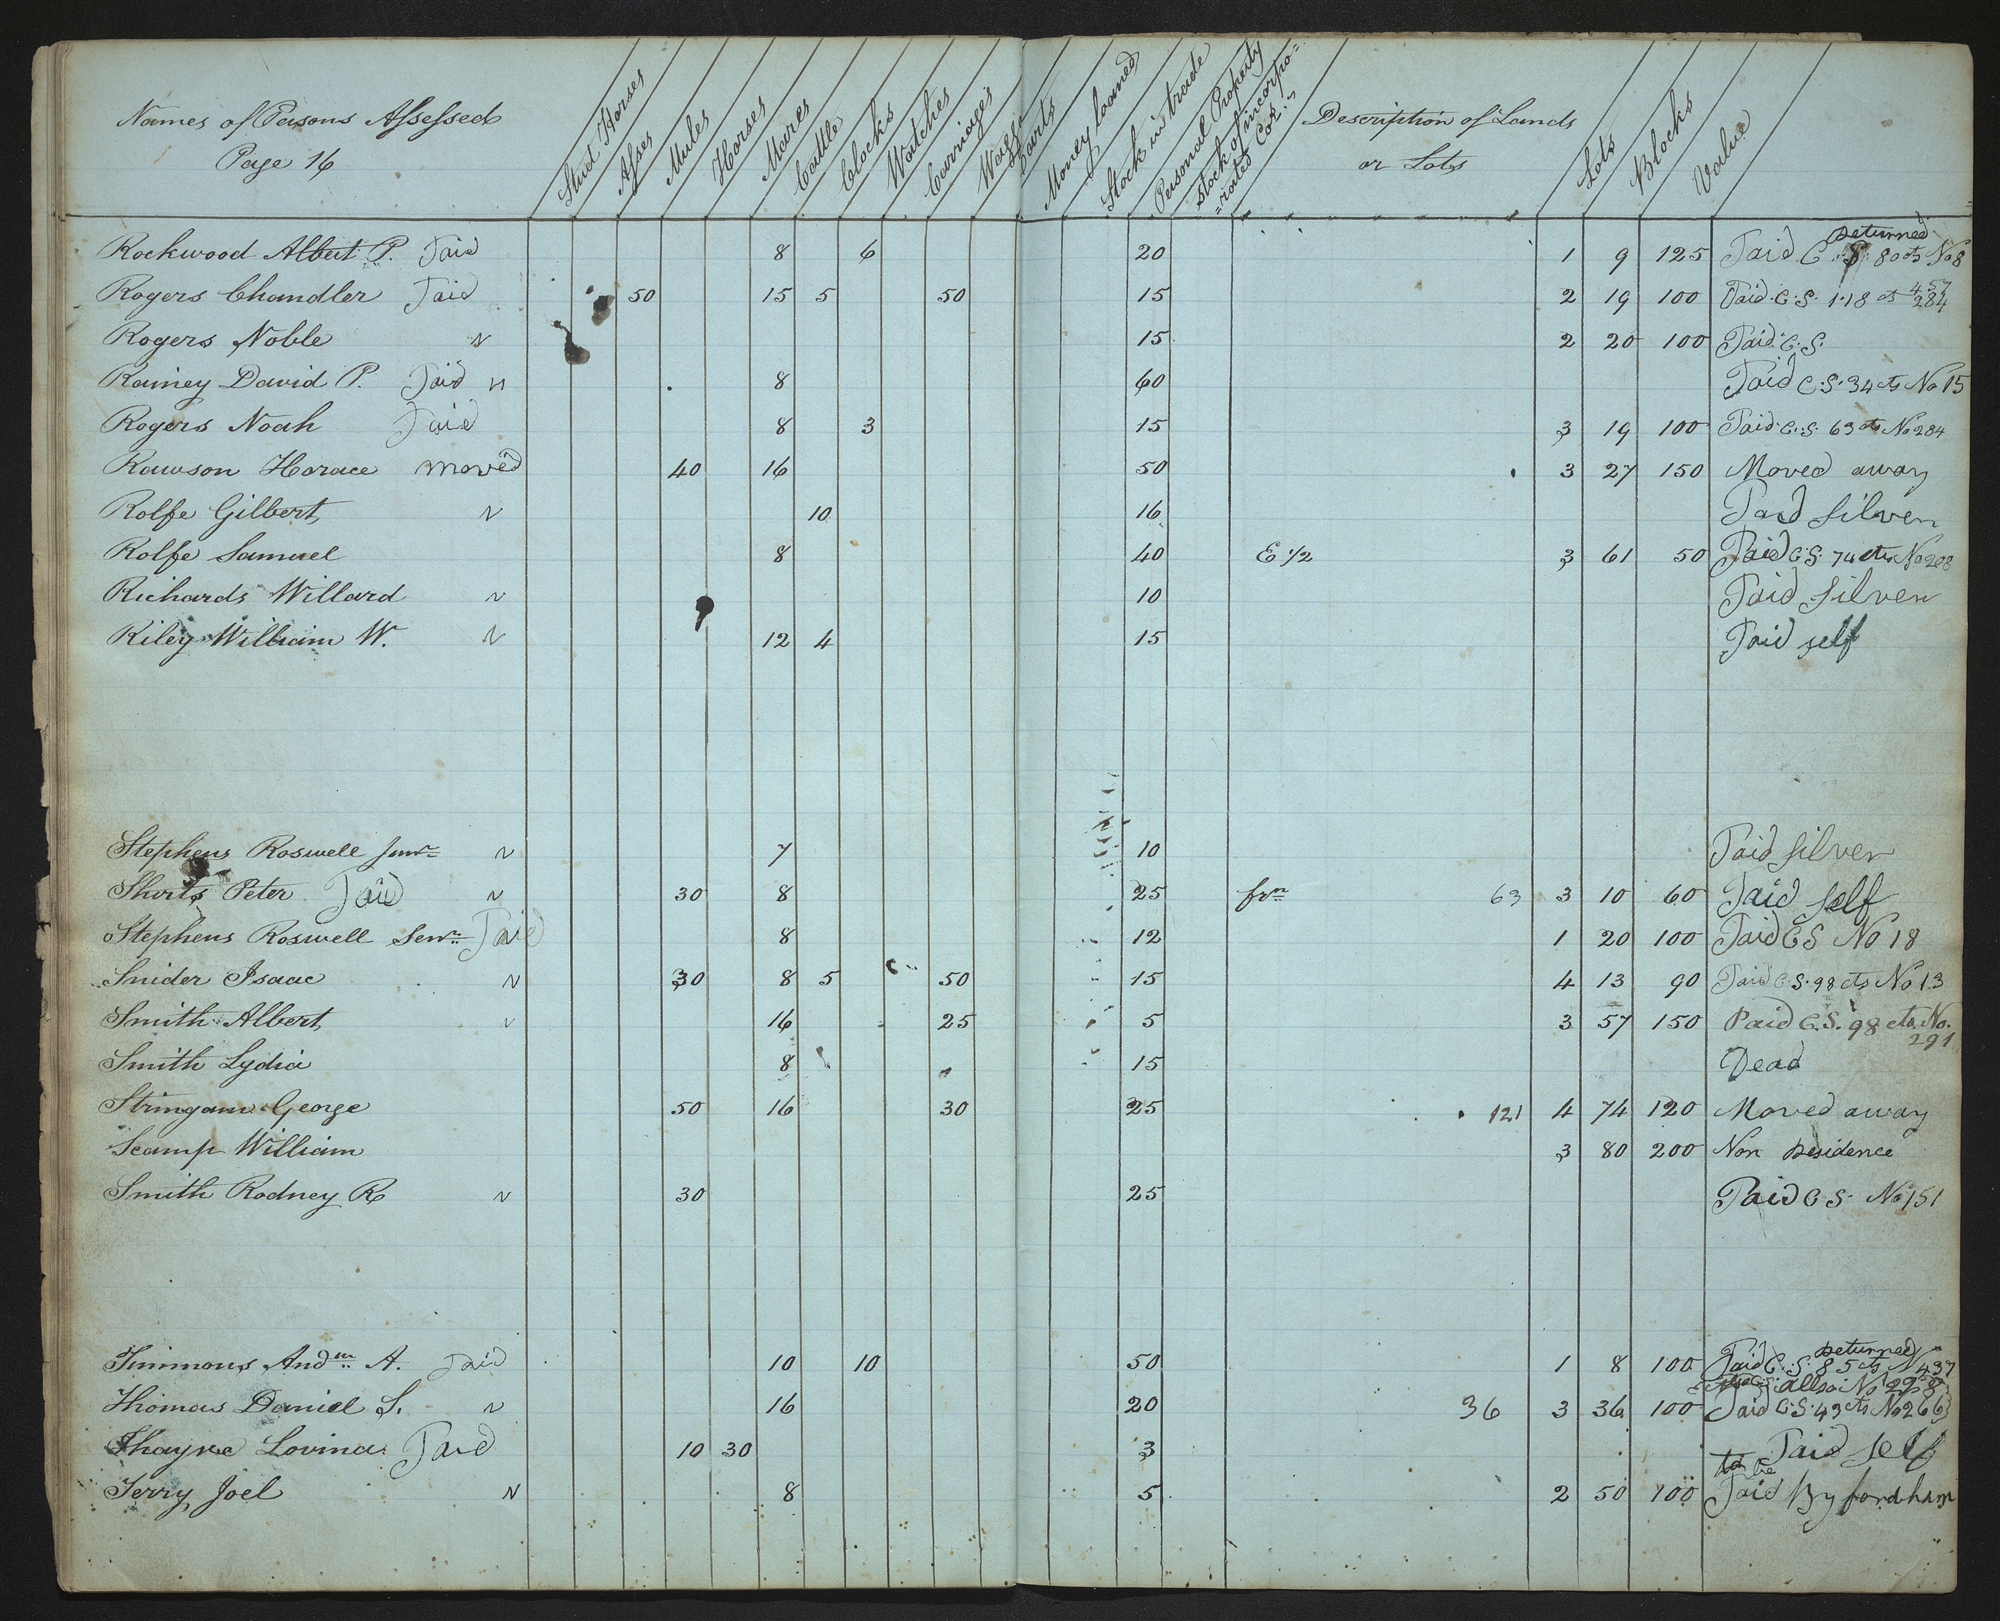 Names of Persons Assessed
Page 16
Stud Horses
Asses
Mules
Horses
Mares
Cattle
Clocks
Watches
Carriages
Waggs
Carts
Money loaned
Stock in trade
Personal Property
Stock of incorpo=
=rated Cos.
Description of Lands
or Lots
Lots
Blocks
Value
Rockwood Albert P. Paid 8 6 20 1 9 125 Paid C. S. 80 cts No 8 Returned
Rogers Chandler Paid 50 15 5 50 15 2 19 100 Paid C. S. 1.18 cts 457 284
Rogers Noble 15 2 20 100 Paid C. S.
Rainey David P. Paid 8 60 Paid C. S. 34 cts No 15
Rogers Noah Paid 8 3 15 3 19 100 Paid C. S. 63 cts No 284
Rawson Horace moved 40 16 50 3 27 150 Moved away
Rolfe Gilbert 10 16 Paid Silver
Rolfe Samuel 8 40 E 1/2 3 61 50 Paid C. S. 74 cts No 208
Richards Willard 10 Paid Silver
Riley William W. 12 4 15 Paid self
Stephens Roswell Junr 7 10 Paid Silver
Shirts Peter Paid 30 8 25 frn 63 3 10 60 Paid Self
Stephens Roswell Senr Paid 8 12 1 20 100 Paid C S No 18
Snider Isaac 30 8 5 50 15 4 13 90 Paid C. S. 98 cts No 13
Smith Albert 16 25 5 3 57 150 Paid C. S. 98 cts. No.
291
Smith Lydia 8 15 Dead
Stringam George 50 16 30 25 121 4 74 120 Moved away
Scamp William 3 80 200 Non Residence
Smith Rodney R 30 25 Paid C S. No 151
Timmons Andw A. Paid 10 10 50 1 8 100 Paid C. S. 85 cts N 437 Returned
allso No 298
Thomas Daniel S. 16 20 36 3 36 100 Paid C. S. 43 cts No 266
Thayre Lovina Paid 10 30 3 Paid self
to be
Terry Joel 8 5 2 50 100 Paid By fordham